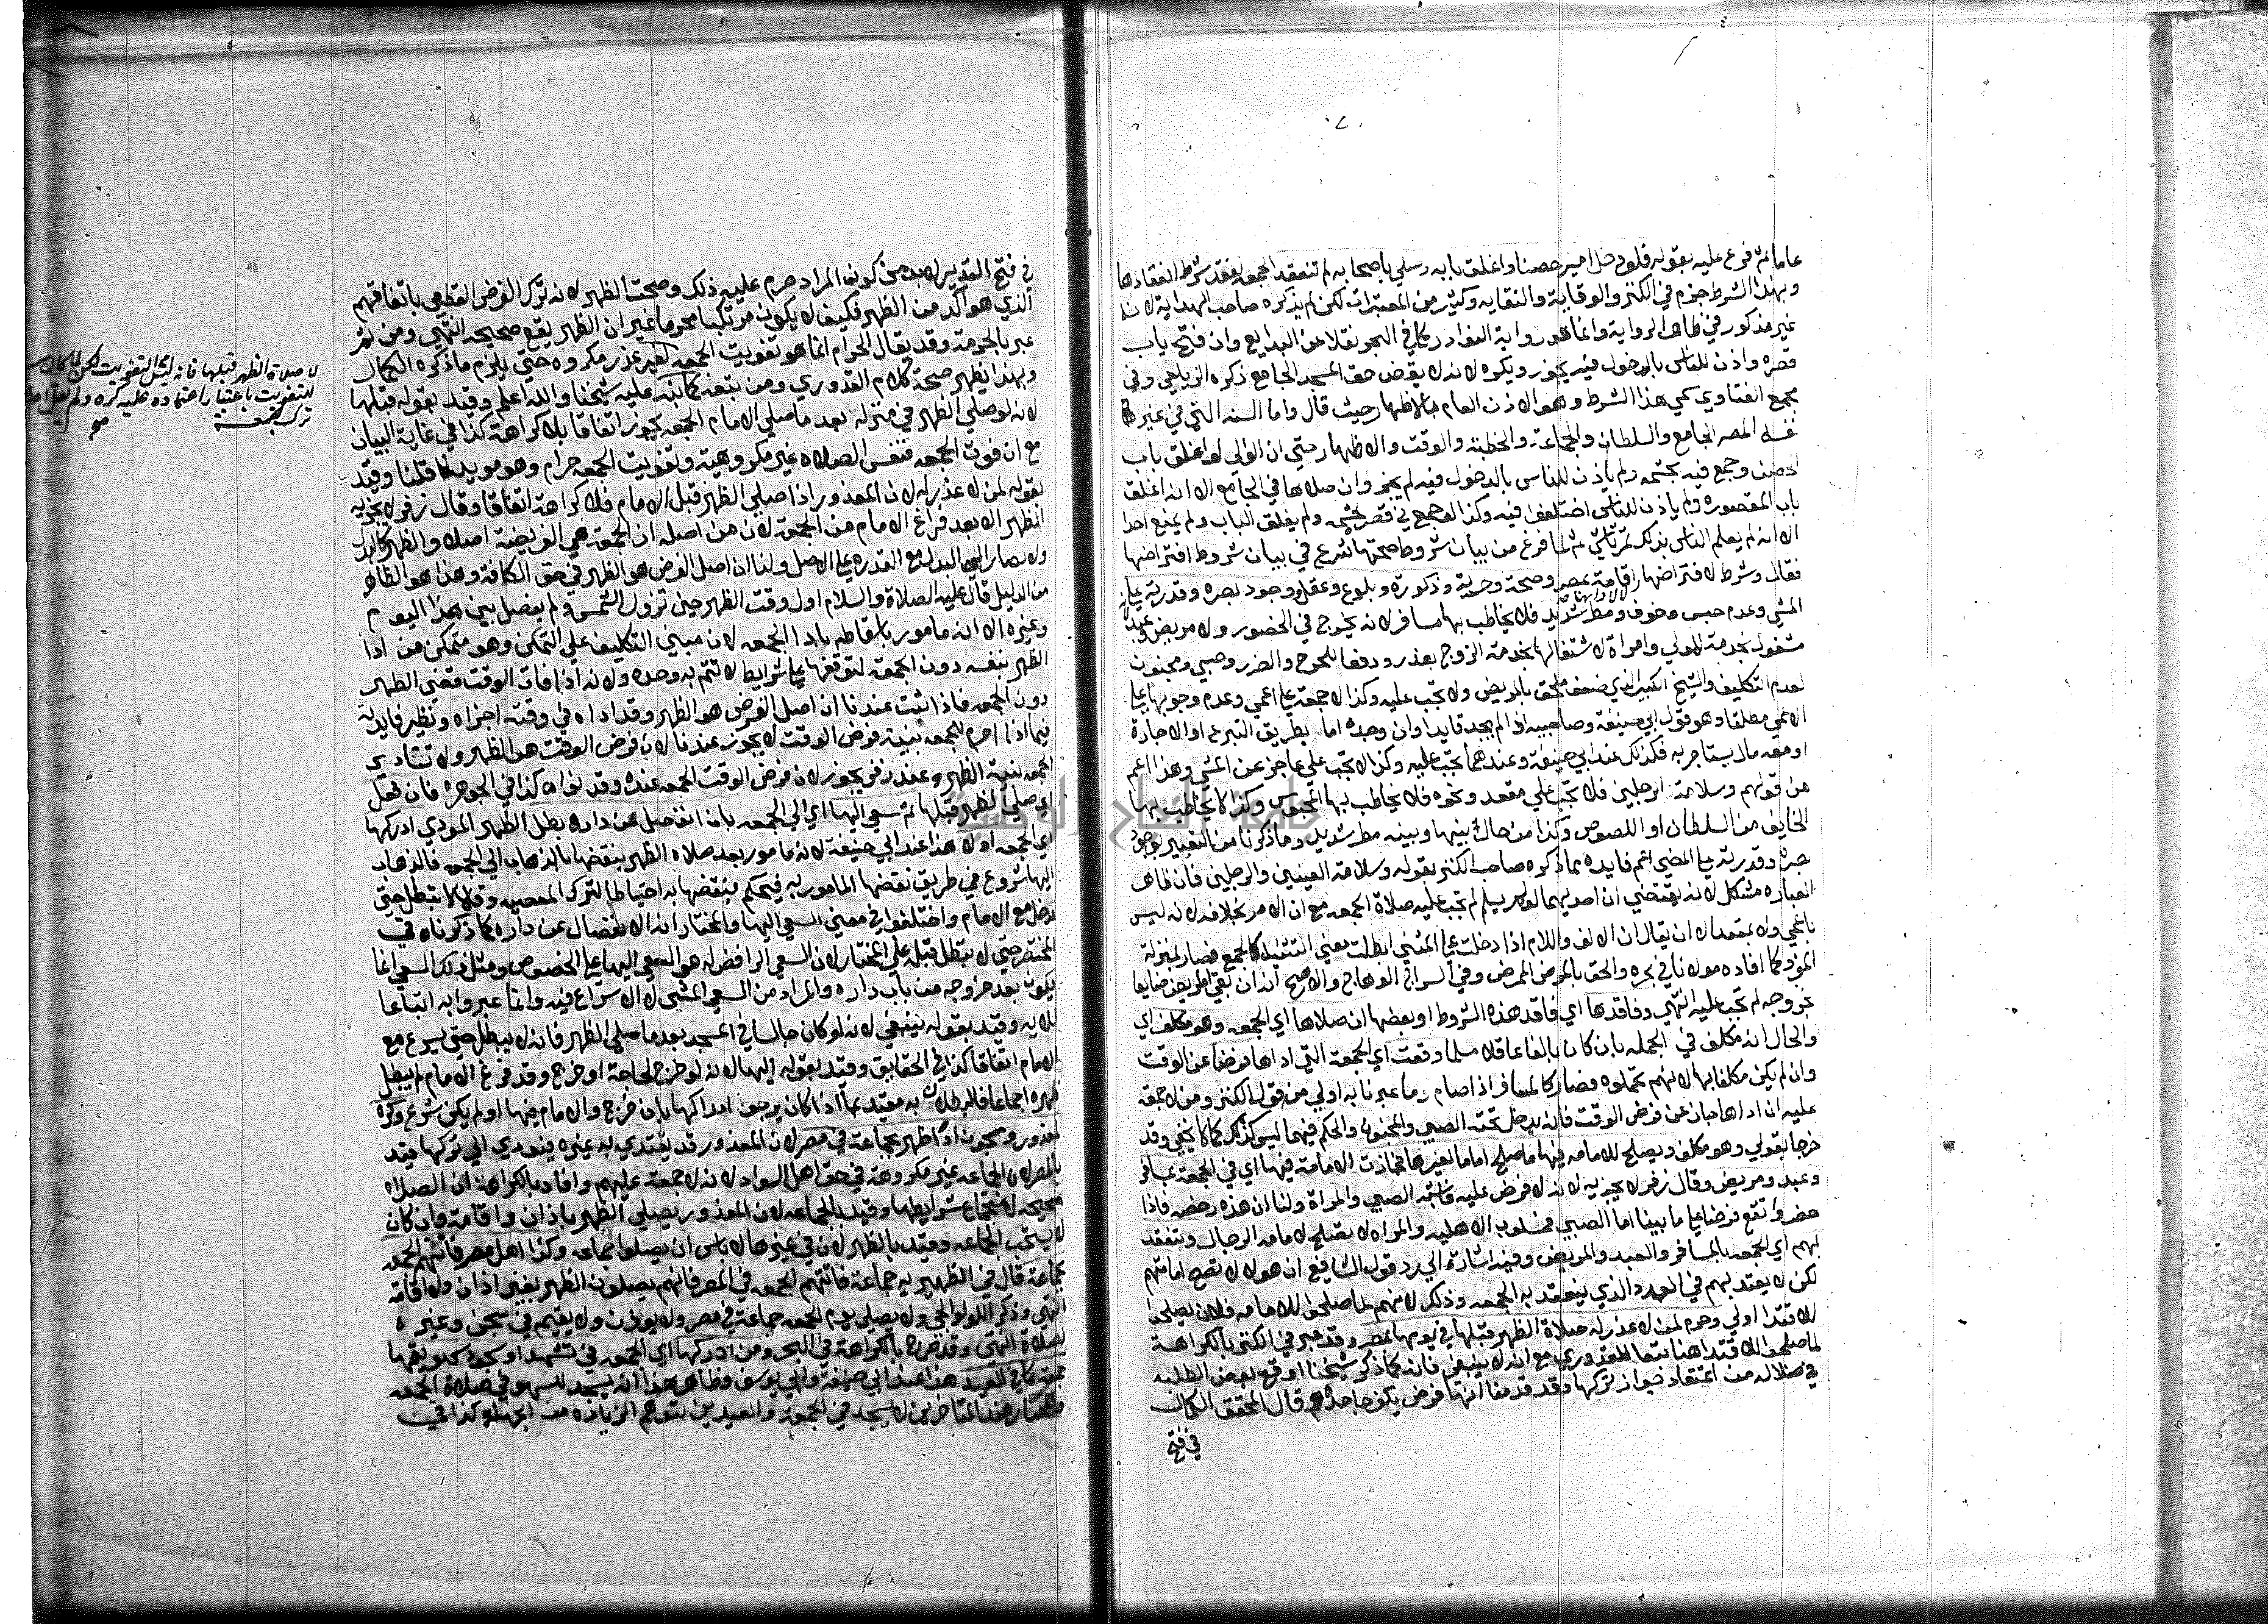 عاما ثم فرع عليه بقوله فلو دخل امير حصنا واغلق بابه وصلي باصحابه لم تنعقد الجمعه لفقد شرط انعقادها
وبهذا الشرط جزم في الكنز والوقاية والنقايه وكثير من المعتبرات لكن لم يذكره صاحب الهداية لانه
غير مذكور في ظاهر الرواية وانما هو رواية النوادر كما في البحر نقلا عن البدايع وان فتح باب
قصره واذن للناس بالدخول فيه يجوز ويكره لانه لم يقض حق المسجد الجامع ذكره الزيلعي وفي
مجمع الفتاوي سمي هذا الشرط وهو الاذن العام بالاظهار حيث قال واما السته التي في غير
نفسه المصر الجامع والسلطان والجماعة والخطبة والوقت والاظهار حتي ان الوالي لو اغلق باب
الحصن وجمع فيه بحشمه ولم ياذن للناس بالدخول فيه لم يجز وان صلاها في الجامع الا انه اغلق
باب المقصورة ولم ياذن للناس اختلفوا فيه وكذا لو جمع في قصر بحشمه ولم يغلق الباب ولم يمنع احدا
الا انه لم يعلم الناس بذلك ثم لما فرغ من بيان شروط صحتها شرع في بيان شروط افتراضها
فقال وشرط لافتراضها اقامة بمصر وصحة وحرية وذكورة وبلوغ وعقل ووجود بصره وقدرته علي
المشي وعدم حبس وخوف ومطر شديد فلا يخاطب بها مسافر لانه يحرج في الحضور ولا مريض وعبد لانه
مشغول بخدمة المولي وامراة لاشتغالها بخدمة الزوج بعذر ودفعا للحرج والضرر وصبي ومجنون
لعدم التكليف والشيخ الكبير الذي ضعف ملحق بالمريض ولا تجب عليه وكذا لا جمعة علي اعمي وعدم وجوبها علي
الاعمي مطلقا وهو قول ابي حنيفة وصاحبيه اذا لم يجد قايدا وان وجده اما بطريق التبرع او الاجارة
او معه مال يستاجر به فكذلك عند ابي حنيفة وعندهما تجب عليه وكذا لا تجب علي عاجز عن المشي وهذا اعم
من قولهم وسلامة الرجلين فلا تجب علي مقعد ونحوه فلا يخاطب بها المحبوس وكذا لا يخاطب بها
الخايف من السلطان او اللصوص وكذا من حال بينها وبينه مطر شديد وما ذكرنا من التعبير بوجود
بصره وقدرته علي المضي اعم فايده مما ذكره صاحب الكنز بقوله وسلامة العينين والرجلين فان ظاهر
العباره مشكل لانه يقتضي ان احديهما لو لم يسلم لم تجب عليه صلاة الجمعه مع ان الامر بخلافه لانه ليس
باعمي ولا بمقعد الا ان يقال ان الالف واللام اذا دخلت علي المثني ابطلت معني التثنية كالجمع فصار بمنزلة
المفرد كما افاده مولانا في بحره والحق بالمريض الممرض وفي السراج الوهاج والاصح انه ان بقي المريض ضايعا
بخروجه لم تجب عليه انتهي وفاقدها اي فاقد هذه الشروط او بعضها ان صلاها اي الجمعه وهو مكلف اي
والحال انه مكلف في الجمله بان كان بالغا عاقلا مسلما وقعت اي الجمعة التي اداها فرضا عن الوقت
وان لم يكن مكلفا بها لانهم تحملوه فصار كالمسافر اذا صام وما عبرنا به اولي من قول الكنز ومن لا جمعة
عليه ان اداها جاز عن فرض الوقت فانه يدخل تحته الصبي والمجنون والحكم فيهما ليس كذلك كما لا يخفي وقد
خرجا بقولي وهو مكلف ويصلح للامامه فيها من صلح اماما لغيرها فجازت الامامة فيها اي في الجمعة بمسافر
وعبد ومريض وقال زفر لا يجزيه لانه لا فرض عليه فاشبه الصبي والمراة ولنا ان هذه رخصه فاذا
حضروا تقع فرضا علي ما بينا اما الصبي فمسلوب الاهليه والمراه لا تصلح لامامه الرجال وتنعقد
بهم اي الجمعه بالمسافر والعبد والمريض وفيه اشارة الي رد قول الشافعي ان هولا لا تصح امامتهم
لكن لا يعتد بهم في العدد الذي ينعقد به الجمعه وذلك لانهم لما صلحوا للامامه فلان يصلحوا
للاقتدا اولي وحرم لمن لا عذر له صلاة الظهر قبلها في يومها بمصر وقد عبر في الكنز بالكراهة
لما صلحوا للاقتدا هنا تبعا للقدوري مع انه لا ينبغي فانه كما ذكر شيخنا اوقع بعض الطلبه
في ضلاله من اعتقاد جواز تركها وقد قدمنا انها فرض يكفر جاحدها قال المحقق الكمال
في فتح
في فتح القدير لا بد من كون المراد حرم عليه ذلك وصحت الظهر لانه ترك الفرض القطعي باتفاقهم
الذي هو اكد من الظهر فكيف لا يكون مرتكبا محرما غير ان الظهر يقع صحيحه انتهي ومن ثم
عبر بالحرمة وقد يقال الحرام انما هو تفويت الجمعه لغير عذر مكروه حتي يلزم ما ذكره الكمال
وبهذا يظهر صحة كلام القدوري ومن تبعه كما نبه عليه شيخنا والله اعلم وقيد بقوله قبلها
لانه لو صلي الظهر في منزله بعد ما صلي الامام الجمعه يجوز اتفاقا بلا كراهة كذا في غاية البيان
مع ان فوت الجمعه فنفس الصلاه غير مكروهية وتفويت الجمعه حرام وهو مويد لما قلنا وقيد
بقوله لمن لا عذر له لان المعذور اذا صلي الظهر قبل الامام فلا كراهة اتفاقا وقال زفر لا يجزيه
الظهر الا بعد فراغ الامام من الجمعة لان من اصله ان الجمعة هي الفريضة اصلا والظهر كالبدل
ولا يصار الي البدل مع القدره علي الاصل ولنا ان اصل الفرض هو الظهر في حق الكافة وهذا هو الظاهر
من الدليل قال عليه الصلاة والسلام اول وقت الظهر حين تزول الشمس ولم يفصل بين هذا اليوم
وغيره الا انه مامور باسقاطه بادا الجمعه لان مبني التكليف علي التمكن وهو متمكن من ادا
الظهر بنفسه دون الجمعة لتوقفها علي شرايط لا تتم به وحده ولانه اذا فات الوقت قضي الظهر
دون الجمعه فاذا ثبت عندنا ان اصل الفرض هو الظهر وقد اداه في وقته اجزاه وتظهر فايدته
فيما اذا احرم للجمعه بنية فرض الوقت لا يجوز عندنا لان فرض الوقت هو الظهر ولا تتادي
الجمعه بنية الظهر وعند زفر يجوز لان فرض الوقت الجمعه عنده وقد نواه كذا في الجوهره فان فعل
اي صلي الظهر قبلها ثم سعي اليها اي الي الجمعه بان انفصل عن داره بطل الظهر المودي ادركها
اي الجمعه او لا هذا عند ابي حنيفة لانه مامور بعد صلاه الظهر بنقضها بالذهاب الي الجمعه فالذهاب
اليها شروع في طريق نقضها المامور به فيحكم بنقضها به احتياطا لترك المعصيه وقالا لا تبطل حتي
يدخل مع الامام واختلفوا في معني السعي اليها والمختار انه الانفصال عن داره كما ذكرناه في
المختصر حتي لا تبطل قبله علي المختار لان السعي الرافض له هو السعي اليها علي الخصوص ومثل ذلك السعي انما
يكون بعد خروجه من باب داره والمراد من السعي المشي لا الاسراع فيه وانما عبروا به اتباعا
للايه وقيد بقوله سعي لانه لو كان جالسا في المسجد بعد ما صلي الظهر فانه لا يبطل حتي يسرع مع
الامام اتفاقا كذا في الحقايق وقيد بقوله اليها لانه لو خرج لحاجة او خرج وقد فرغ الامام لم يبطل
ظهره اجماعا فالبطلان به مقيد بما اذا كان يرجو ادراكها بان خرج والامام فيها او لم يكن شرع وكره
لمعذور ومسجون ادا ظهر بجماعة في مصر لان المعذور قد يقتدي به غيره فيودي الي تركها قيد
بالمصر لان الجماعه غير مكروهة في حق اهل السواد لانه لا جمعة عليهم وافاد بالكراهة ان الصلاه
صحيحه لاستجماع شرايطها وقيد بالجماعه لان المعذور يصلي الظهر باذان واقامة وان كان
لا يستحب الجماعه وقيد بالظهر لان في غيرها لا باس ان يصلوا جماعه وكذا اهل مصر فاتتهم الجمعه
بجماعة قال في الظهيرية جماعة فاتتهم الجمعه في المصر فانهم يصلون الظهر بغير اذان ولا اقامة
انتهي وذكر الولوالجي ولا يصلي يوم الجمعه جماعة في مصر ولا يوذن ولا يقيم في سجن وغيره
لصلاة انتهي وقد صرح بالكراهة في البحر ومن ادركها اي الجمعه في تشهد او سجود سهو يتمها
جمعة كما في العيد هذا عند ابي حنيفة وابي يوسف وظاهر هذا انه يسجد للسهو في صلاة الجمعه
والمختار عند المتاخرين لا يسجد في الجمعة والعيدين لتوهم الزياده من الجهال كذا في
لا صلاة الظهر قبلها فانه ليس التفويت لكن لما كان
للتفويت باعتبار اعتماده عليه كره ولم
ترك جمعة